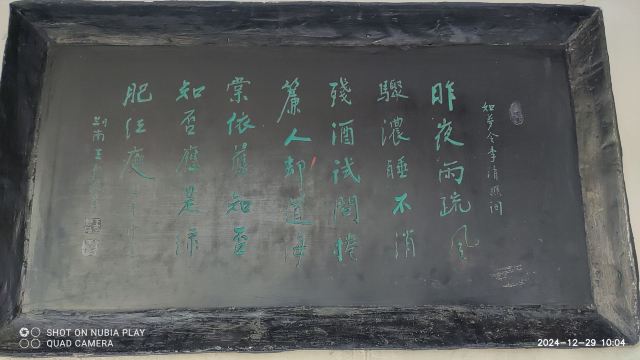 如梦令李清照詞
昨夜雨疏風
驟濃睡不消
殘酒試問捲
簾人却道海
棠依舊知否
知否應是绿
肥红瘦
SHOT ON NUBIA PLAY
QUAD CAMERA
2024-12-29 10:04